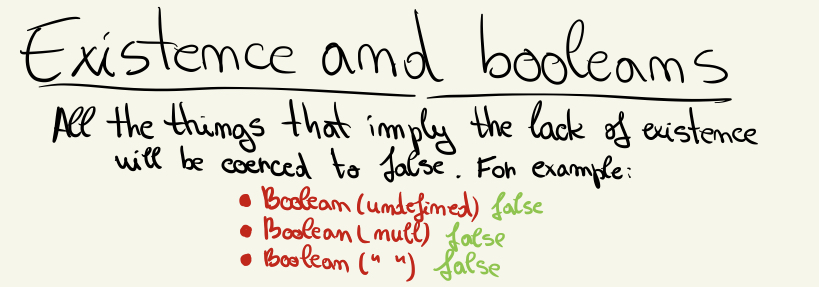 Existence and booleans
All the things that imply the lack of existence
will be coerced to false. For example:
• Boolean (undefined) false
• Boolean (null) false
• Boolean (" ") false